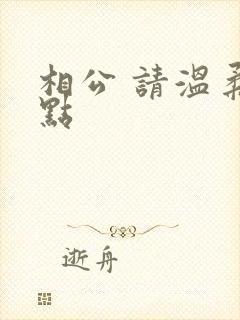 相公 請溫柔
點
逝舟